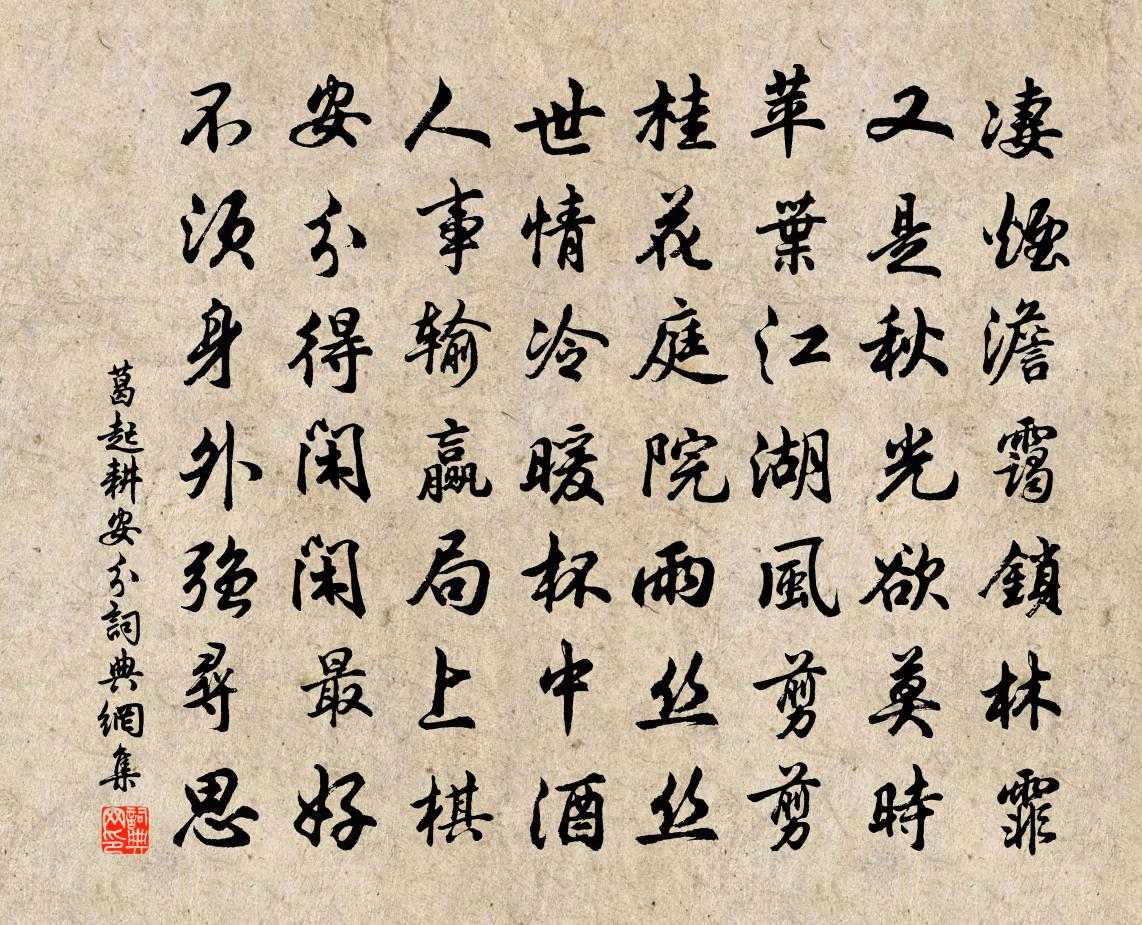 凄煙澹靄鎖林霏
又是秋光欲莫時
苹葉江湖風剪剪
桂花庭院雨丝丝
世情冷暖杯中酒
人事输赢局上棋
安分得閑閑最好
不須身外強尋思
葛起耕安分詞典網集
詞典網印